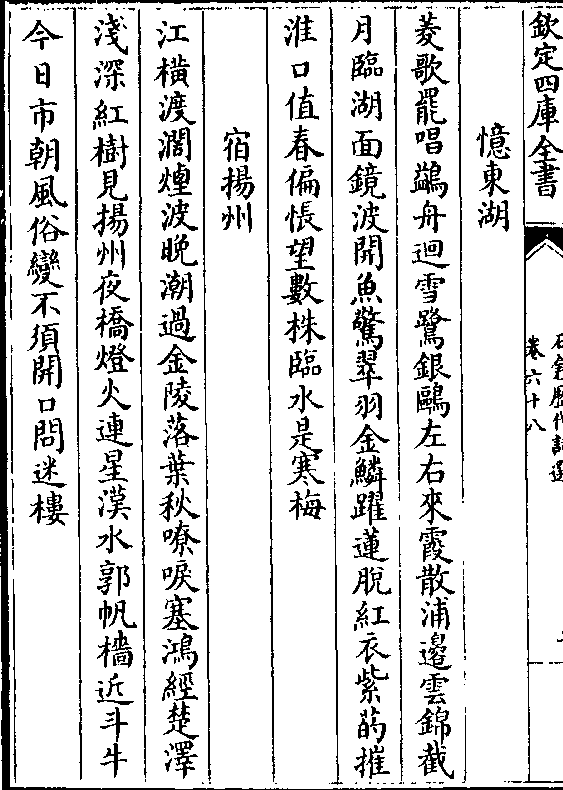 欽定四庫全書
卷六十八
憶東湖
菱歌罷唱鷁舟迴雪鷺銀鷗左右來霞散浦邊雲錦截
月臨湖面鏡波開魚驚翠羽金鱗躍蓮脫紅衣紫菂摧
淮口值春偏悵望數株臨水是寒梅
宿揚州
江橫渡濶煙波晚潮過金陵落葉秋嘹唳塞鴻經楚澤
淺深紅樹見揚州夜橋燈火連星漢水郭帆檣近斗牛
今日市朝風俗變不須開口問迷樓